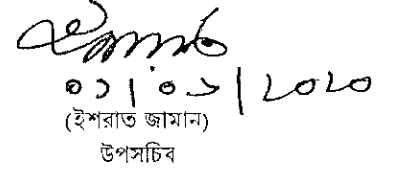 ০১|০১|২০২০
(ইশরাত জামান)
উপসচিব